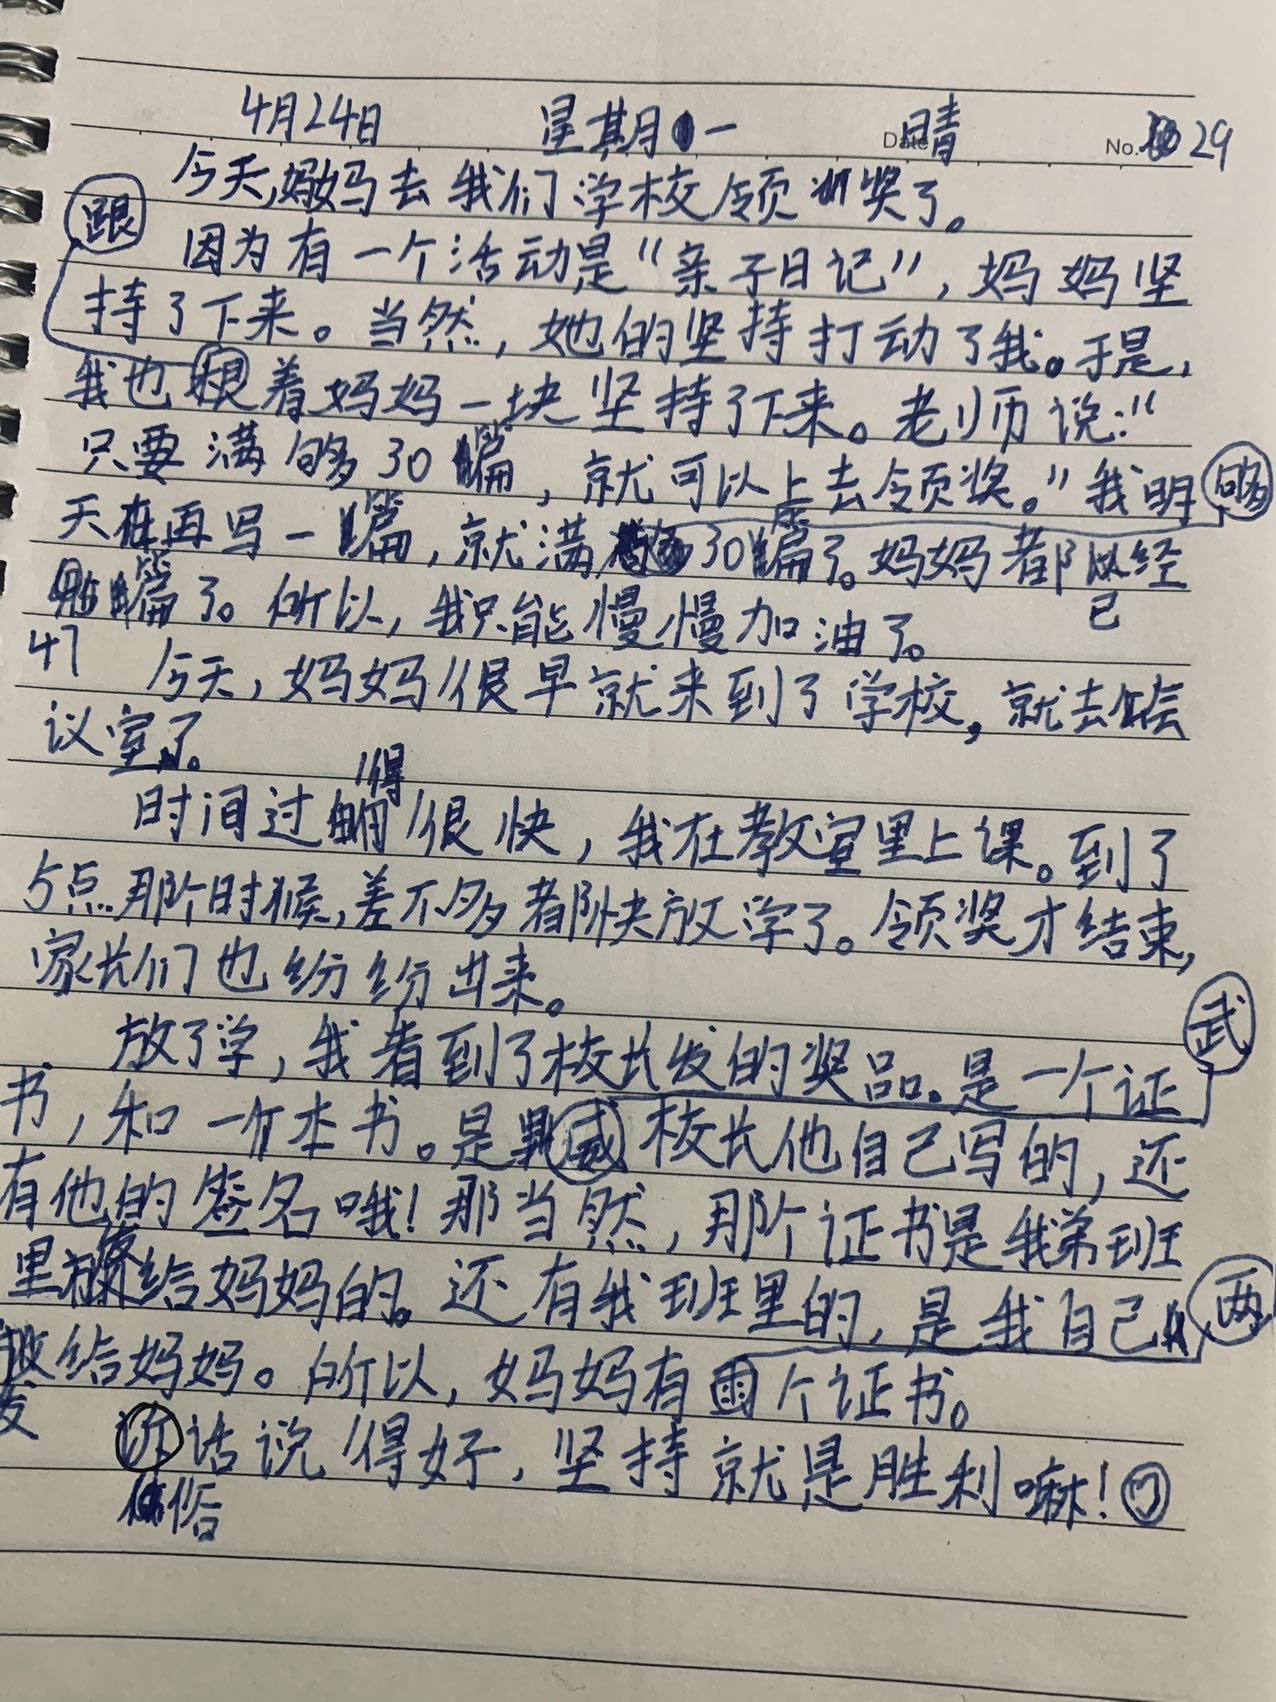 4月24日 星期一 晴 Date No. 29
今天,妈妈去我们学校领奖了。
跟
因为有一个活动是“亲子日记”,妈妈坚
持了下来。当然,她的坚持打动了我。于是,
我也跟着妈妈一块坚持了下来。老师说:“
只要满够30篇,就可以上去领奖。”我明
够
天再写一篇,就满30篇了。妈妈都已经
47篇了。所以,我只能慢慢加油了。
今天,妈妈很早就来到了学校,就去会
议室了。
时间过得很快,我在教室里上课。到了
5点那个时候,差不多都快放学了。领奖才结束,
家长们也纷纷出来。
武
放了学,我看到了校长发的奖品。是一个证
书,和一本书。是校长他自己写的,还
有他的签名哦!那当然,那个证书是我弟班
里发给妈妈的。还有我班里的,是我自己
两
发给妈妈。所以,妈妈有个证书。
俗话说得好,坚持就是胜利嘛!